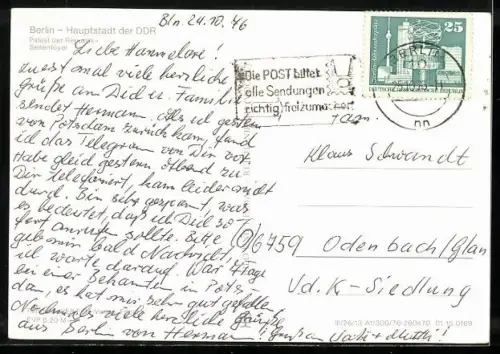 Bln. 24.10.76
Berlin – Hauptstadt der DDR
Palast der Republik –
Seitenfoyer
Liebe Hannelore!
zuerst mal viele herzliche
Grüße an Did u. Familie
sendet Hermann. Als id gestern
von Potsdam zurück kam, fand
ich das Telegram von Dir vor.
Habe gleid gestern Abend zu
Dir telefoniert, kam leider nidt
durd. Bin sehr gespannt, was
es bedeutet, daß ich Did so
fort anrufen sollte. Bitte
geb mir bald Nadridt,
ich warte darauf. War 7 Tage
bei einer Bekannten in Pots-
dam, es hat mir sehr gut gefallen.
Nochmals viele herzliche Grüße
aus Berlin von Hermann! Gruß an
Die POST bittet
alle Sendungen
richtig freizumachen
BERLIN
25
DEUTSCHE
Fam.
Klaus Schwandt
6759 Odenbach/Glan
V.d.K-Siedlung
EVP 0,20 M
III/26/13
01 15 0169